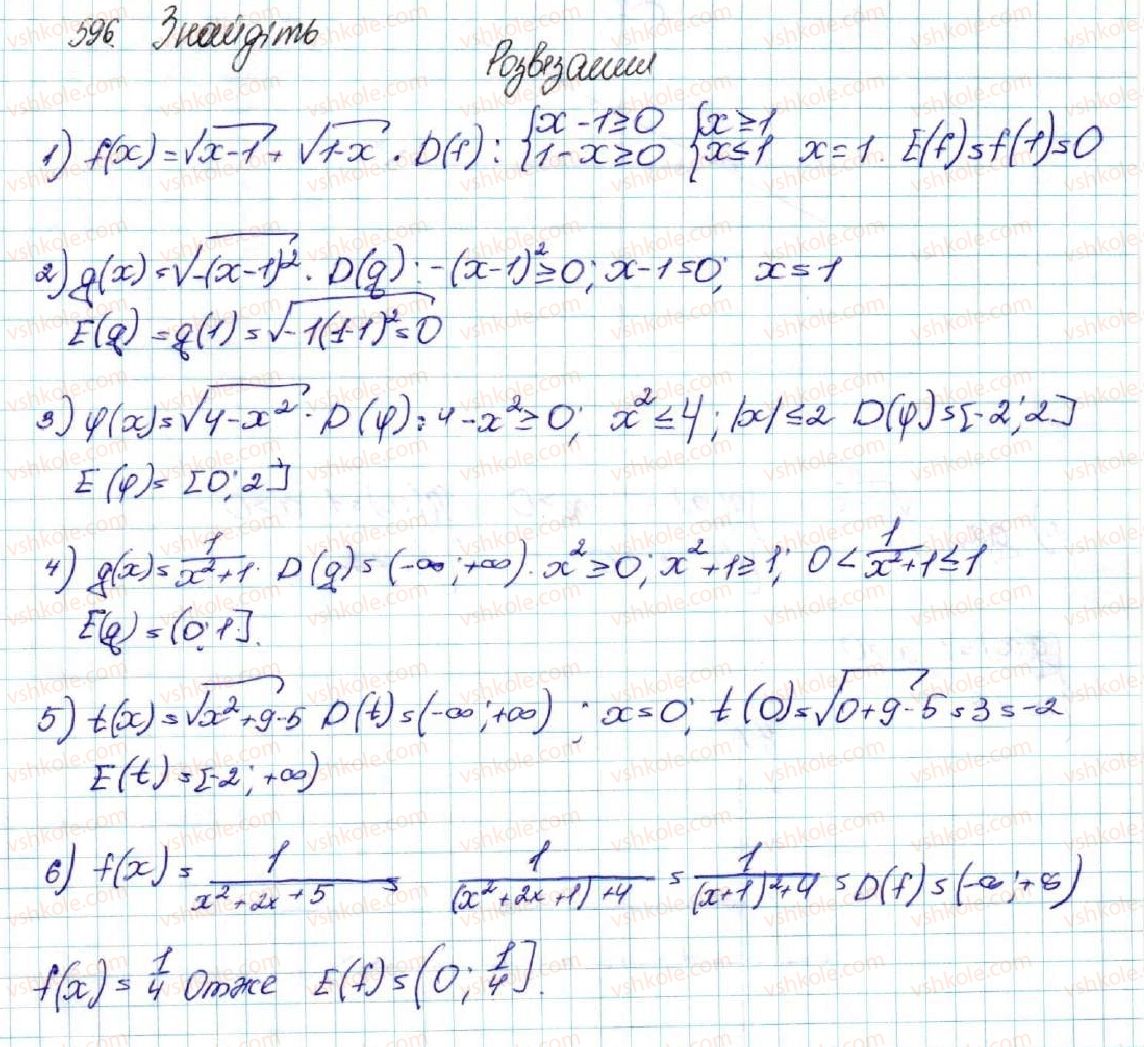 596. Знайдіть
Розвязання
1) f(x) = √x-1 + √1-x . D(f): {x-1≥0 1-x≥0 {x≥1 x≤1 x=1. E(f)=f(1)=0
2) g(x)=√-(x-1)². D(g): -(x-1)²≥0; x-1=0; x=1
E(g)=g(1)=√-1(1-1)²=0
3) φ(x)=√4-x². D(φ): 4-x²≥0; x²≤4; |x|≤2 D(φ)=[-2;2]
E(φ)=[0;2]
4) g(x)=1/x²+1. D(g)=(-∞;+∞). x²≥0; x²+1≥1; 0<1/x²+1≤1
E(g)=(0;1].
5) t(x)=√x²+9-5 D(t)=(-∞;+∞) ; x=0; t(0)=√0+9-5=3=-2
E(t)=[-2;+∞)
6) f(x)=1/x²+2x+5 = 1/(x²+2x+1)+4 = 1/(x+1)²+4 = D(f)=(-∞;+∞)
f(x)=1/4 Отже E(f)=(0;1/4].